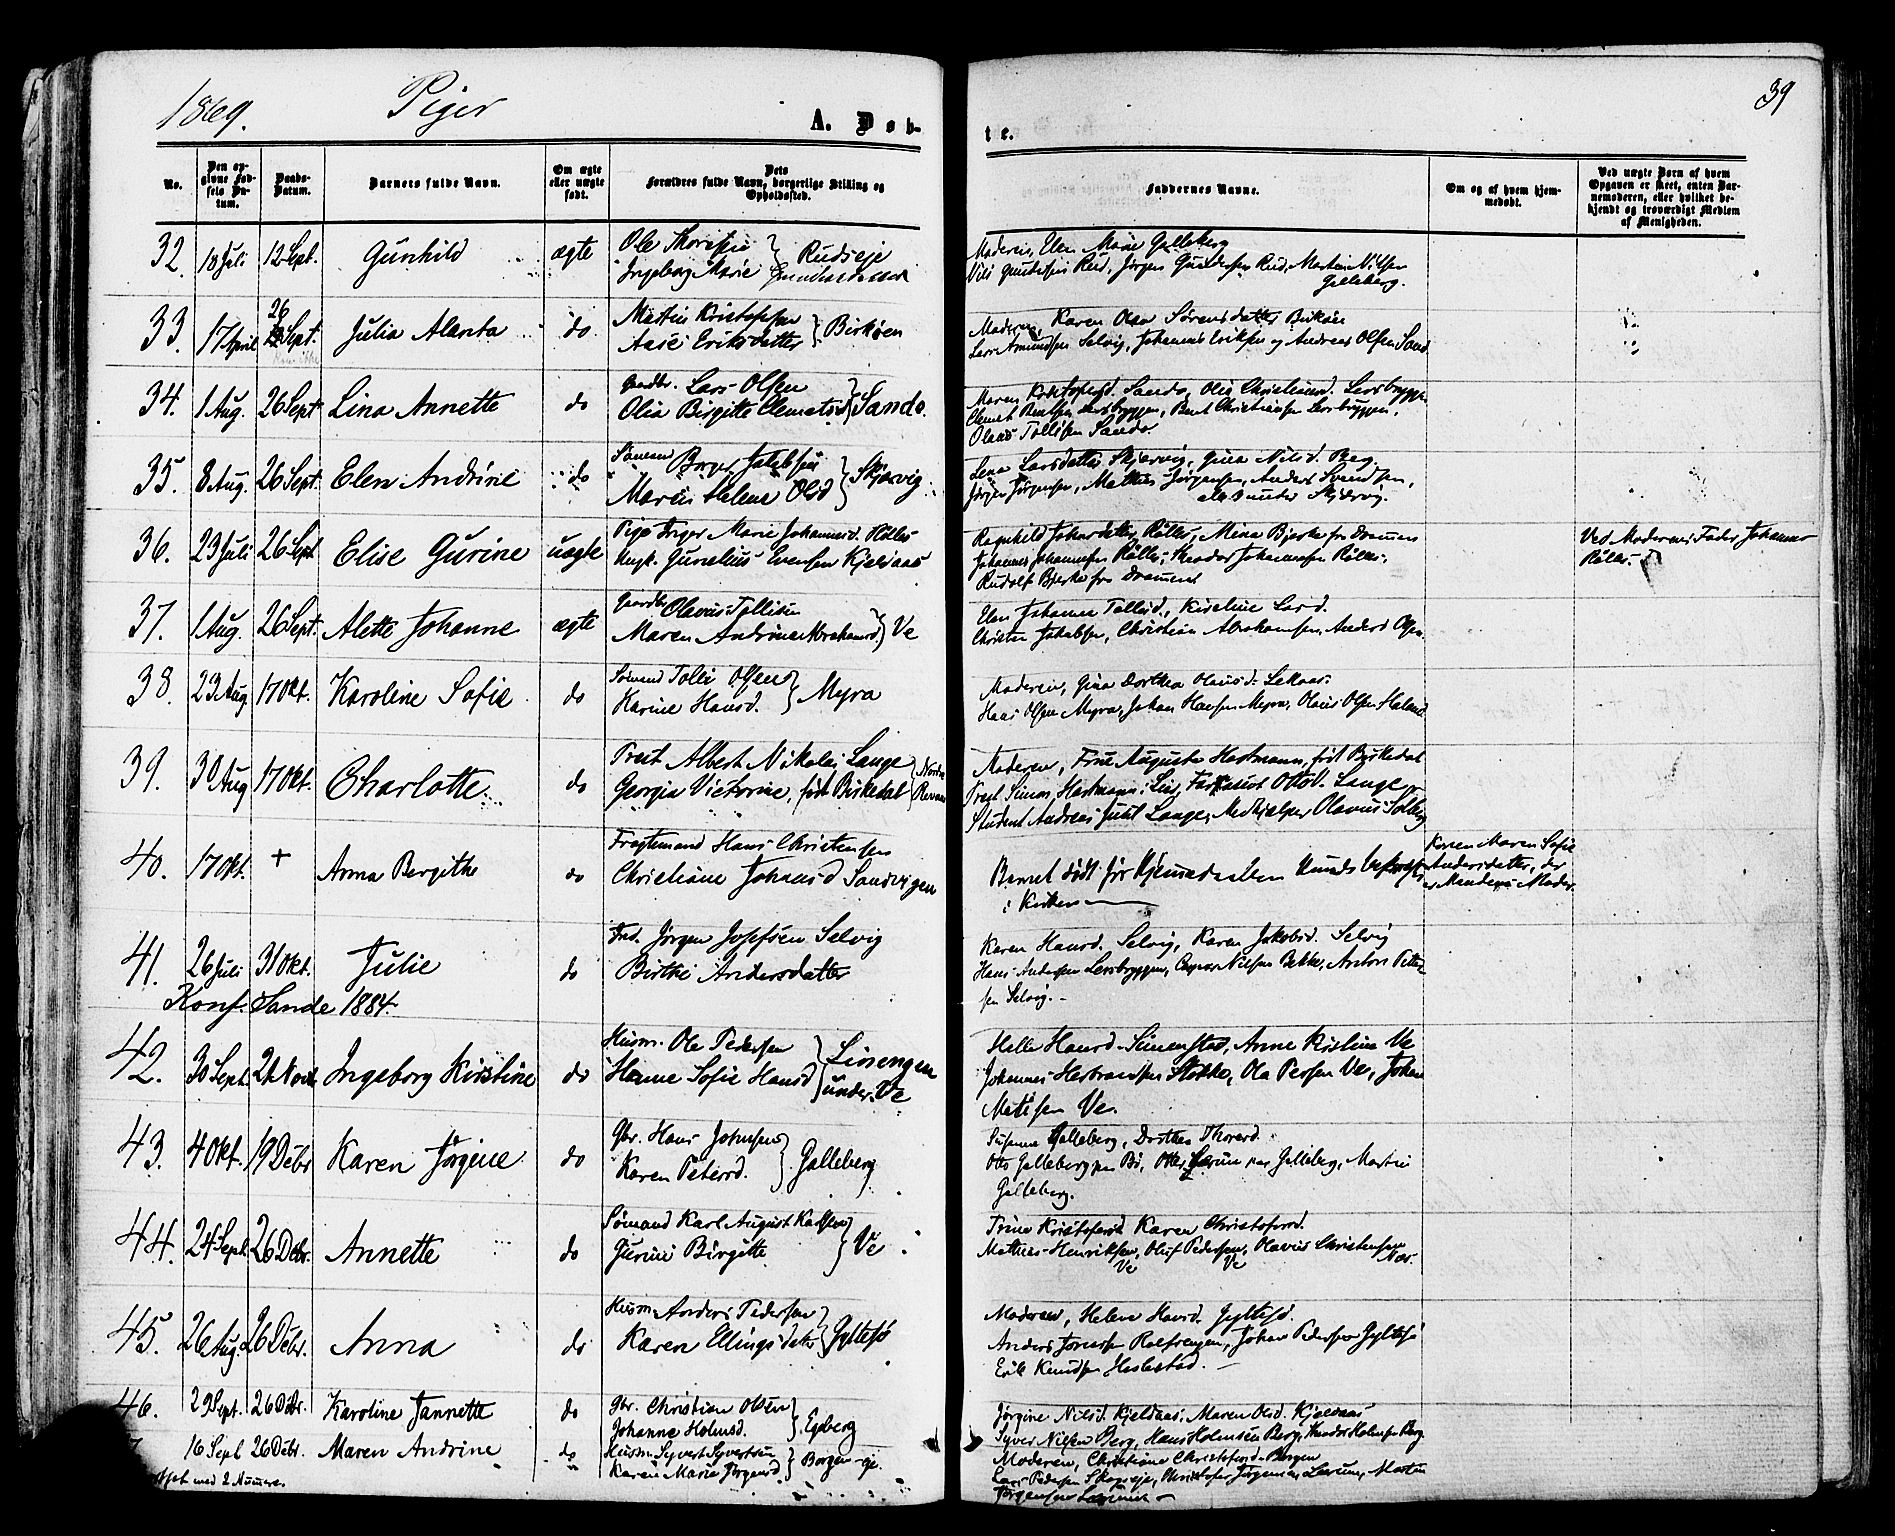 1869.
Piger
A. Døb-
te.
39
No.
Den op-
givne Fød-
sels Da-
tum.
Daabs-
Datum.
Barnets fulde Navn.
Om ægte
eller uægte
født.
Dets
Forældres fulde Navn, borgerlige Stilling og
Opholdssted.
Faddernes Navne.
Om og af hvem hjem-
medøbt.
Ved uægte Børn af hvem
Opgaven er skeet, enten Bar-
nemoderen, eller hvilket be-
kjendt og troværdigt Medlem
af Menigheden.
32. 18 Juli 12 Sept. Gunhild ægte Ole Thoresen
Ingeborg Marie } Rudseje
Moderen, Elen Marie Galleberg
Nils Gundersen Rud, Jørgen Gundersen Rud, Martin Nilsen
Galleberg.
33. 17 April 26 Sept. Julia Alanta do Martin Kristoffersen
Aase Eriksdatter } Birkøen
Moderen, Karen Olea Sørensdatter Birkøen
Lars Amundsen Selvig, Johannes Eriksen og Andreas Olsen Sand
34. 1 Aug. 26 Sept. Lina Annette do Gaardbr. Lars Olsen
Olia Birgitte Clemetsd } Sando.
Maren Kristofersd. Sando, Olia Christiansd. Lersbryggen
Clemet Bentsen Lersbryggen, Bent Christiansen Lersbryggen,
Olaus Tollisen Sando.
35. 8 Aug. 26 Sept. Elen Andrine do Sømand Borger Jakobsen
Maren Helene Olsd } Skjærvig
Lena Larsdatter Skjærvig, Gina Nilsd. Berg
Jørgen Jørgensen, Mathias Jørgensen, Anders Svendsen,
alle under Skjærvig.
36. 23 Juli 26 Sept Elise Gurine uægte Pige Inger Marie Johannesd. Røllis
Ungk. Gunelius Evensen Kjeldaas
Ragnhild Johannesdatter Røllis, Mina Bjerke fra Drammen
Johannes Johannesen Røllis, Theodor Johannesen Røllis,
Rudolf Bjerke fra Drammen
Ved Moderens Fader Johannes
Røllis.
37. 1 Aug. 26 Sept. Alette Johanne ægte Gaardbr. Olavus Tollisen
Maren Andrine Abrahamsd } Ve
Elen Johanne Tollisd., Kirstine Larsd.
Christen Jakobsen, Christian Abrahamsen, Anders Olsen
38. 23 Aug. 17 Okt. Karoline Sofie do Sømand Tolli Olsen
Karine Hansd. } Myra
Moderen, Gina Dorthea Olausd. Lekaas
Hans Olsen Myra, Johan Hansen Myra, Olaus Olsen Haland
39. 30 Aug 17 Okt. Charlotte do Prest Albert Nikolai Lange
Georgia Victorine, født Birkedal } Nordre
Revaa
Moderen, Frue Augusta Hartmann, født Birkedal
Prest Simon Hartmann i Lier, Otto V. Lange
Student Andreas Juul Lange, Medhjælper Olavus Solberg
40. 17 Okt. + Anna Bergithe do Fragtemand Hans Christensen
Christiane Johansd Sandvigen
Barnet dødt før Hjemmedaabens Stadfæstelse
i Kirken
Konen Maren Sofie
Andersdatter, der
er Mandens Moder.
41. 26 Juli 31 Okt. Julie do Ind. Jørgen Josefsen Selvig
Birthe Andersdatter
Karen Hansd. Selvig, Karen Jakobsd. Selvig
Hans Andersen Lersbryggen, Casper Nilsen Bekke, Anton Petter-
sen Selvig.-
Konf. Sande 1884.
42. 30 Sept. 21 Nov. Ingeborg Kirstine do Husm. Ole Pedersen
Hanne Sofie Hansd } Linengen
under Ve
Helle Hansd. Simenstad, Anne Kistine Ve
Johannes Herbrandsen Holtko, Ola Persen Ve, Johan
Matisen Ve.
43. 4 Okt. 19 Debr Karen Jørgine do Gbr. Hans Johnsen
Karen Petersd. } Galleberg
Susanne Galleberg, Dorthea Thorersd.
Otto Galleberg paa Bø, Otter Lærum paa Galleberg, Martin
Galleberg.
44. 24 Sept. 26 Debr. Annette do Sømand Karl August Karlsen
Gurine Birgitte } Ve
Trine Kristofersd. Karen Christofersd.
Mathias Henriksen, Oluf Pedersen, Olavus Christensen
Ve Ve Næs.
45. 26 Aug. 26 Debr. Anna do Husm. Anders Pedersen
Karen Ellingsdatter } Gyltesø
Moderen, Helene Hansd. Gyltesø.
Anders Jonassen Rolfsengen, Johan Pedersen Gyltesø
Erik Knudsen Haslestad.
46. 29 Sept. 26 Debr. Karoline Jannette do Gbr. Christian Olsen
Johanne Holmsd. } Egeberg
Jørgine Nilsd. Kjeldaas, Maren Olsd. Kjeldaas
Syver Nilsen Berg, Hans Holmsen Berg, Anders Holmsen Berg.
16 Sept 26 Debr. Maren Andrine do Husm. Syvert Syvertsen
Karen Marie Jørgensd. } Borgen-eje.
Moderen, Christiane Christofersd. Borgen
Lars Pedersen Skogseje, Christofer Jørgensen Lærum, Martin
Jørgensen Lærum
med 2 Numere.